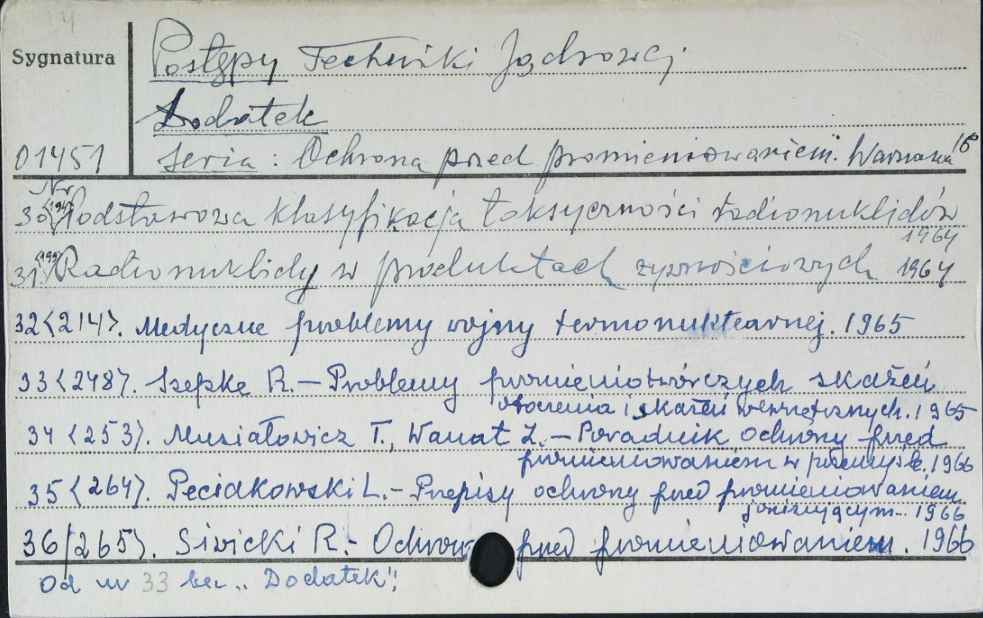 Sygnatura
Postępy Techniki Jądrowej
Dodatek
01451 Seria: Ochrona przed promieniowaniem. Warszawa
Nr
30 Podstawowa klasyfikacja toksyczności radionuklidów
1964
31 Radionuklidy w produktach żywnościowych 1964
32<214>. Medyczne problemy wojny termonuklearnej. 1965
33<248>. Szepke R. — Problemy promieniotwórczych skażeń
otoczenia i skażeń wewnętrznych. 1965
34<253>. Musiałowicz T., Wanat Z. — Poradnik ochrony przed
promieniowaniem w przemyśle. 1966
35<264>. Peciakowski L. - Przepisy ochrony przed promieniowaniem
jonizującym. 1966
36/265>. Siwicki R. - Ochrona przed promieniowaniem. 1966
Od nr 33 bez „Dodatek"